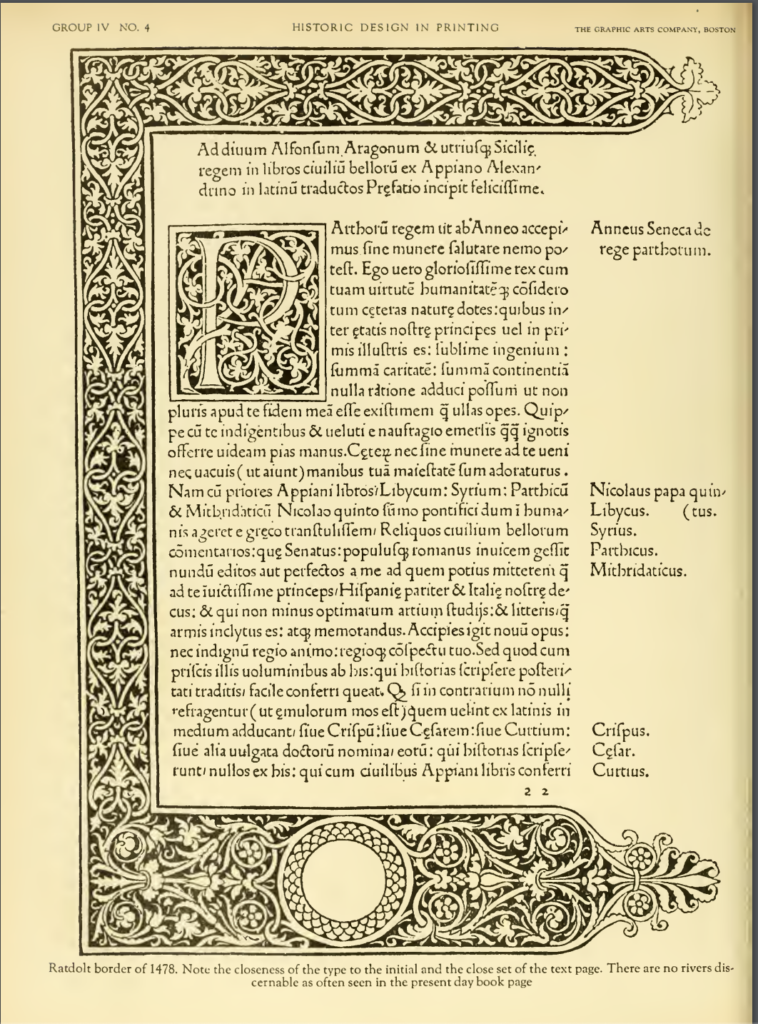 GROUP IV NO. 4
HISTORIC DESIGN IN PRINTING
THE GRAPHIC ARTS COMPANY, BOSTON
Ad diuum Alfonſum Aragonum & utriuſqꝫ Sicilię
regem in libros ciuiliũ bellorũ ex Appiano Alexan-
drino in latinũ traductos Pręfatio incipit feliciſſime.
P
Arthorũ regem ut ab Anneo accepi-
mus ſine munere ſalutare nemo po-
teſt. Ego uero glorioſiſſime rex cum
tuam uirtutẽ humanitatẽqꝫ cõſidero
tum cęteras naturę dotes: quibus in-
ter ętatis noſtrę principes uel in pri-
mis illuſtris es: ſublime ingenium:
ſummã caritatẽ: ſummã continentiã
nulla ratione adduci poſſum ut non
pluris apud te fidem meã eſſe exiſtimem q̃ ullas opes. Quip-
pe cũ te indigentibus & ueluti e naufragio emerſis q̃q̃ ignotis
offerre uideam pias manus. Cęteꝝ nec ſine munere ad te ueni
nec uacuis (ut aiunt) manibus tuã maieſtatẽ ſum adoraturus.
Nam cũ priores Appiani libros/Libycum: Syrium: Parthicũ
& Mithridaticũ Nicolao quinto ſũmo pontifici dum ĩ huma-
nis ageret e gręco tranſtuliſſem/ Reliquos ciuilium bellorum
cõmentarios: quę Senatus: populuſqꝫ romanus inuicem geſſit
nundũ editos aut perfectos a me ad quem potius mitterem q̃
ad te ĩuictiſſime princeps/Hiſpanię pariter & Italię noſtrę de-
cus: & qui non minus optimarum artium ſtudijs: & litteris/q̃
armis inclytus es: atqꝫ memorandus. Accipies igit nouũ opus:
nec indignũ regio animo: regioqꝫ cõſpectu tuo. Sed quod cum
priſcis illis uoluminibus ab his: qui hiſtorias ſcripſere poſteri-
tati traditis/ facile conferri queat. Qꝫ ſi in contrarium nõ nulli
refragentur (ut ęmulorum mos eſt) quem uelint ex latinis in
medium adducant/ ſiue Criſpũ: ſiue Cęſarem: ſiue Curtium:
ſiue alia uulgata doctorũ nomina/ eorũ: qui hiſtorias ſcripſe-
runt/ nullos ex his: qui cum ciuilibus Appiani libris conferri
a 2
Anneus Seneca de
rege parthorum.
Nicolaus papa quin-
Libycus. (tus.
Syrius.
Parthicus.
Mithridaticus.
Criſpus.
Cęſar.
Curtius.
Ratdolt border of 1478. Note the closeness of the type to the initial and the close set of the text page. There are no rivers dis-
cernable as often seen in the present day book page